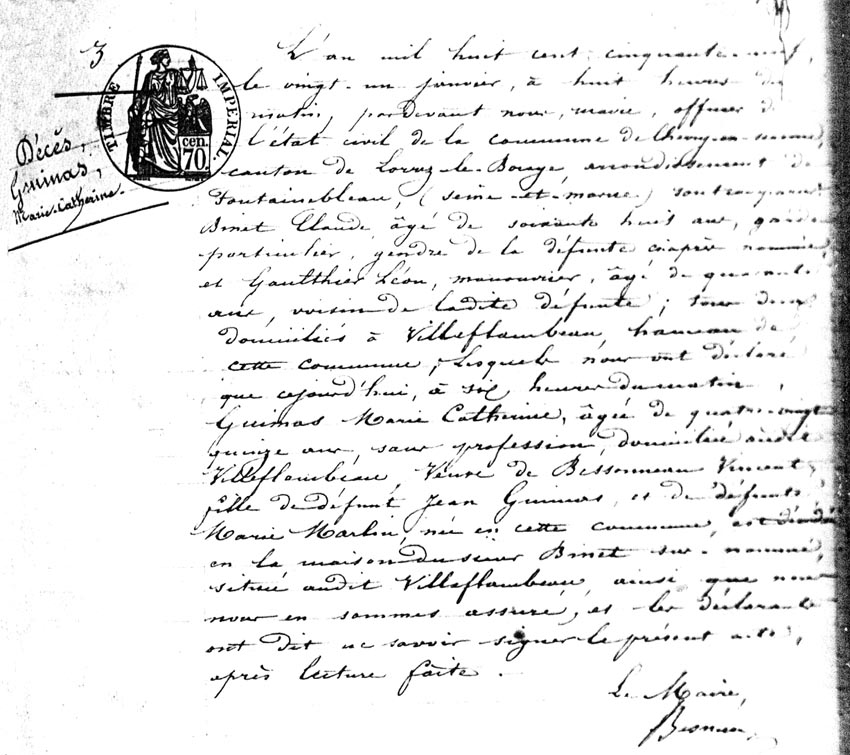 3
TIMBRE IMPERIAL
cen.
70.
Décès,
Guimas,
Marie-Catherine.
L'an mil huit cent cinquante-neuf,
le vingt-un janvier, à huit heures du
matin, pardevant nous, maire, officier de
l'état civil de la commune de
canton de Lorrez-le-Bocage, arrondissement de
Fontainebleau, (Seine-et-marne) sont comparus
Binet Claude, âgé de soixante huit ans, garde
particulier, gendre de la défunte ciaprès nommée,
et Gaulthier Léon, manouvrier, âgé de quarante
ans, voisin de ladite défunte; tous deux
domiciliés à Villeflambeau, hameau de
cette commune; Lesquels nous ont déclaré
que cejourd'hui, à six heures du matin,
Guimas Marie Catherine, âgée de quatre-vingt
quinze ans, sans profession, domiciliée audit
Villeflambeau, Veuve de Bissonneau Vincent,
fille de défunt Jean Guimas, et de défunte
Marie Martin, née en cette commune, est décédée
en la maison du sieur Binet sus-nommé,
située audit Villeflambeau, ainsi que nous
nous en sommes assuré, et les déclarants
ont dit ne savoir signer le présent acte,
après lecture faite.
Le Maire,